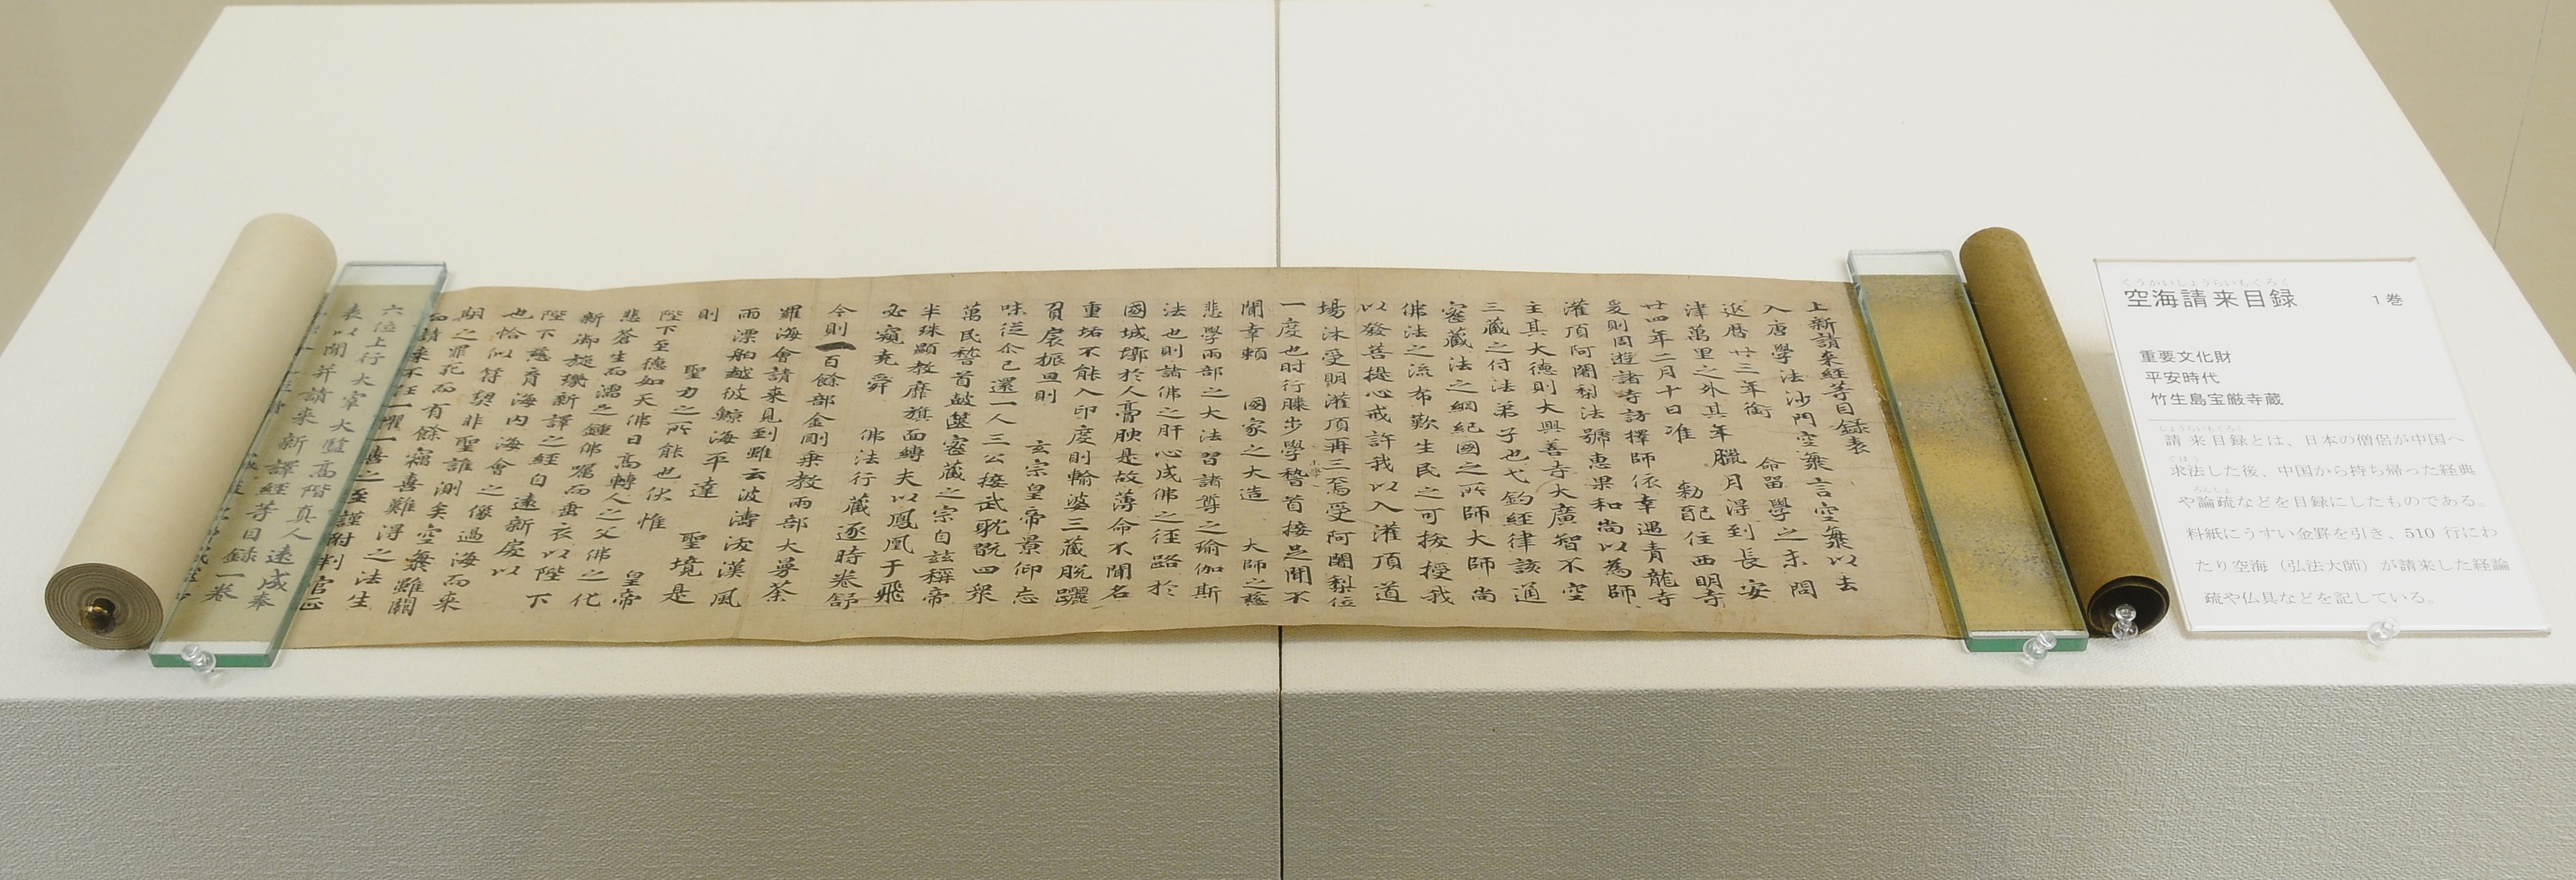 上新請來經等目録表
入唐學法沙門空海言空海以去
延暦廿三年銜 命留學之末問
津萬里之外其年臘月得到長安
廿四年二月十日准 勅配住西明寺
爰則周遊諸寺訪擇師依幸遇青龍寺
灌頂阿闍梨法號惠果和尚以為師
主其大德則大興善寺大廣智不空
三藏之付法弟子也弋鈎經律該通
密藏法之綱紀國之所師大師尚
佛法之流布歎生民之可拔授我
以發菩提心戒許我以入灌頂道
場沐受明灌頂再三焉受阿闍梨位
一度也肘行膝步學未學稽首接足聞不
聞幸頼 國家之大造 大師之慈
悲學兩部之大法習諸尊之瑜伽斯
法也則諸佛之肝心成佛之徑路於
國城墎於人膏腴是故薄命不聞名
重垢不能入印度則輸婆三藏脱躧
負扆振旦則 玄宗皇帝景仰忘
味從尒已還一人三公接武耽翫四衆
萬民稽首鼓篋密藏之宗自茲稱帝
半珠顯教靡旗面縛夫以鳳凰于飛
必窺堯舜 佛法行藏逐時卷舒
今則一百餘部金剛乘教兩部大曼荼
羅海會請來見到雖云波濤汲漢風
雨漂舶越彼鯨海平達 聖境是
則 聖力之所能也伏惟 皇帝
陛下至德如天佛日高轉人之父佛之化
悲蒼生而濡足鍾佛囑而垂衣以陛下
新御旋璣新譯之經自遠新度以
也恰似符契非聖誰測矣空海雖闕
期之罪死而有餘竊喜難得之法生
而請來不任一懼一喜之至謹附判官正
六位上行大宰大監高階真人遠成奉
表以聞并請來新譯經等目録一卷
空海請来目録 1巻
くうかいしょうらいもくろく
重要文化財
平安時代
竹生島宝厳寺蔵
しょうらいもくろく
請来目録とは、日本の僧侶が中国へ
ぐほう
求法した後、中国から持ち帰った経典
ろんしょ
や論疏などを目録にしたものである。
料紙にうすい金罫を引き、510 行にわ
たり空海（弘法大師）が請来した経論
疏や仏具などを記している。